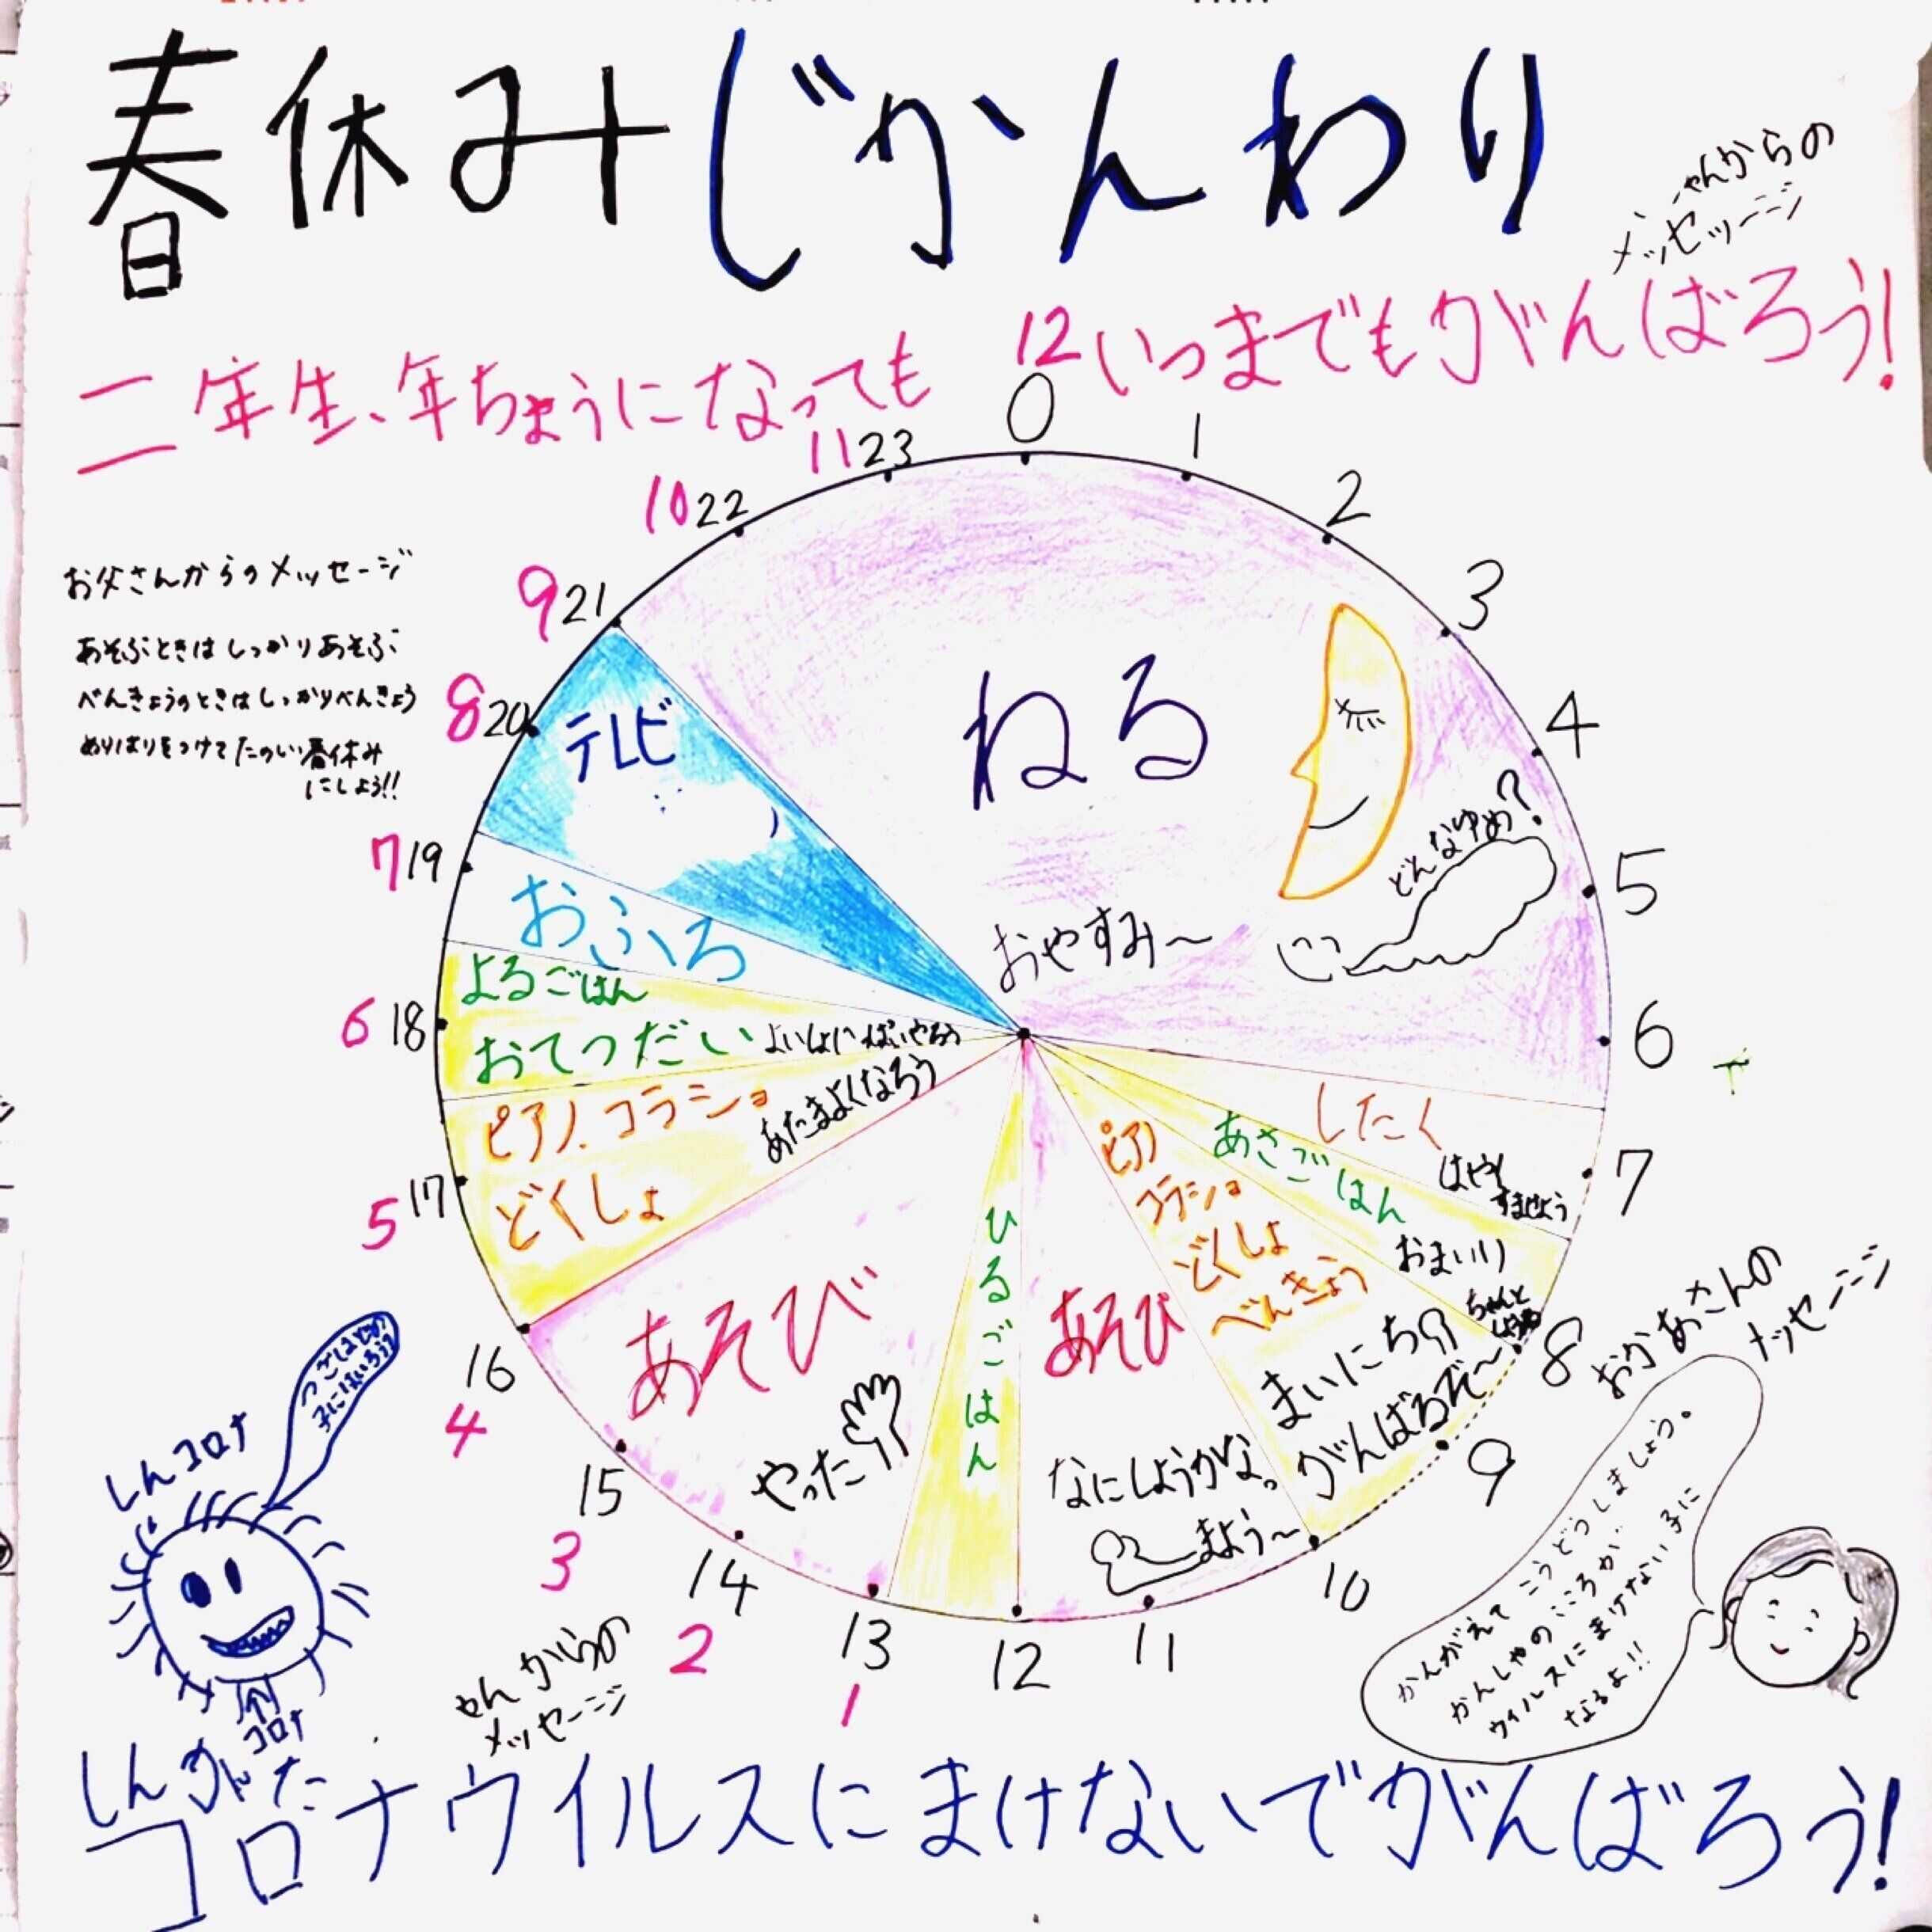 春休みじかんわり
ゃんからの
メッセージ
二年生、年ちょうになっても
いつまでもがんばろう!
12
0
1
2
3
4
5
6
7
8
9
10
11
12
13
1
14
2
15
3
16
4
5 17
6 18
7 19
8 20
9 21
10 22
11 23
お父さんからのメッセージ
あそぶときはしっかりあそぶ
べんきょうのときはしっかりべんきょう
めりはりをつけてたのしい春休み
にしよう!!
ねる
どんなゆめ?
おやすみ〜
したく
はやく
すませよう
あさごはん
おまいり
ちゃんと
ピアノ
コラショ
どくしょ
べんきょう
まいにち
がんばるぞ〜
あそび
なにしようかな。
まよう〜
ひるごはん
あそび
やったー
ピアノ.コラショ
あたまよくなろう
どくしょ
よるごはん
おてつだい
おふろ
テレビ
おかあさんの
メッセージ
かんがえてこうどうしましょう。
かんしゃのこころが、
ウイルスにまけない子に
なるよ!!
しんコロナ
子にはいろう
コロナ
ゃんからの
メッセージ
しんがた
コロナウイルスにまけないでがんばろう!